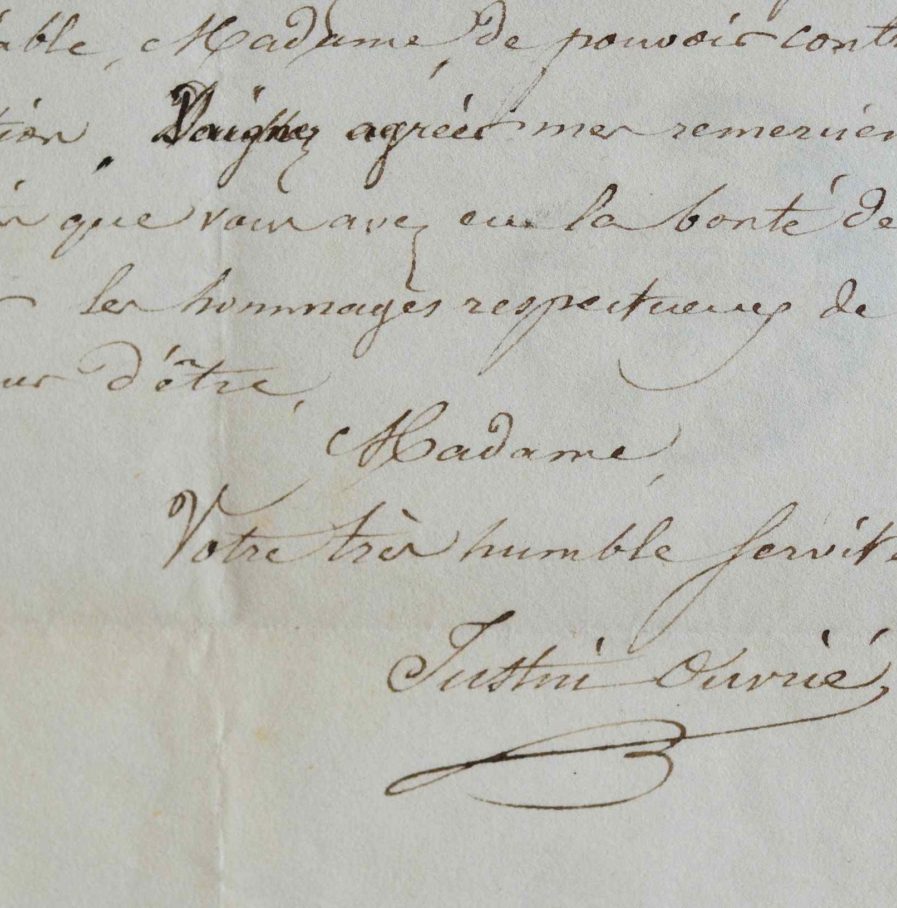 able, Madame, de pouvoir cont
tion. Daignez agréer mes remercie
que vous avez eu la bonté de
les hommages respectueux de
ur d'être,
Madame,
Votre très humble servit
Justin Ouvrié